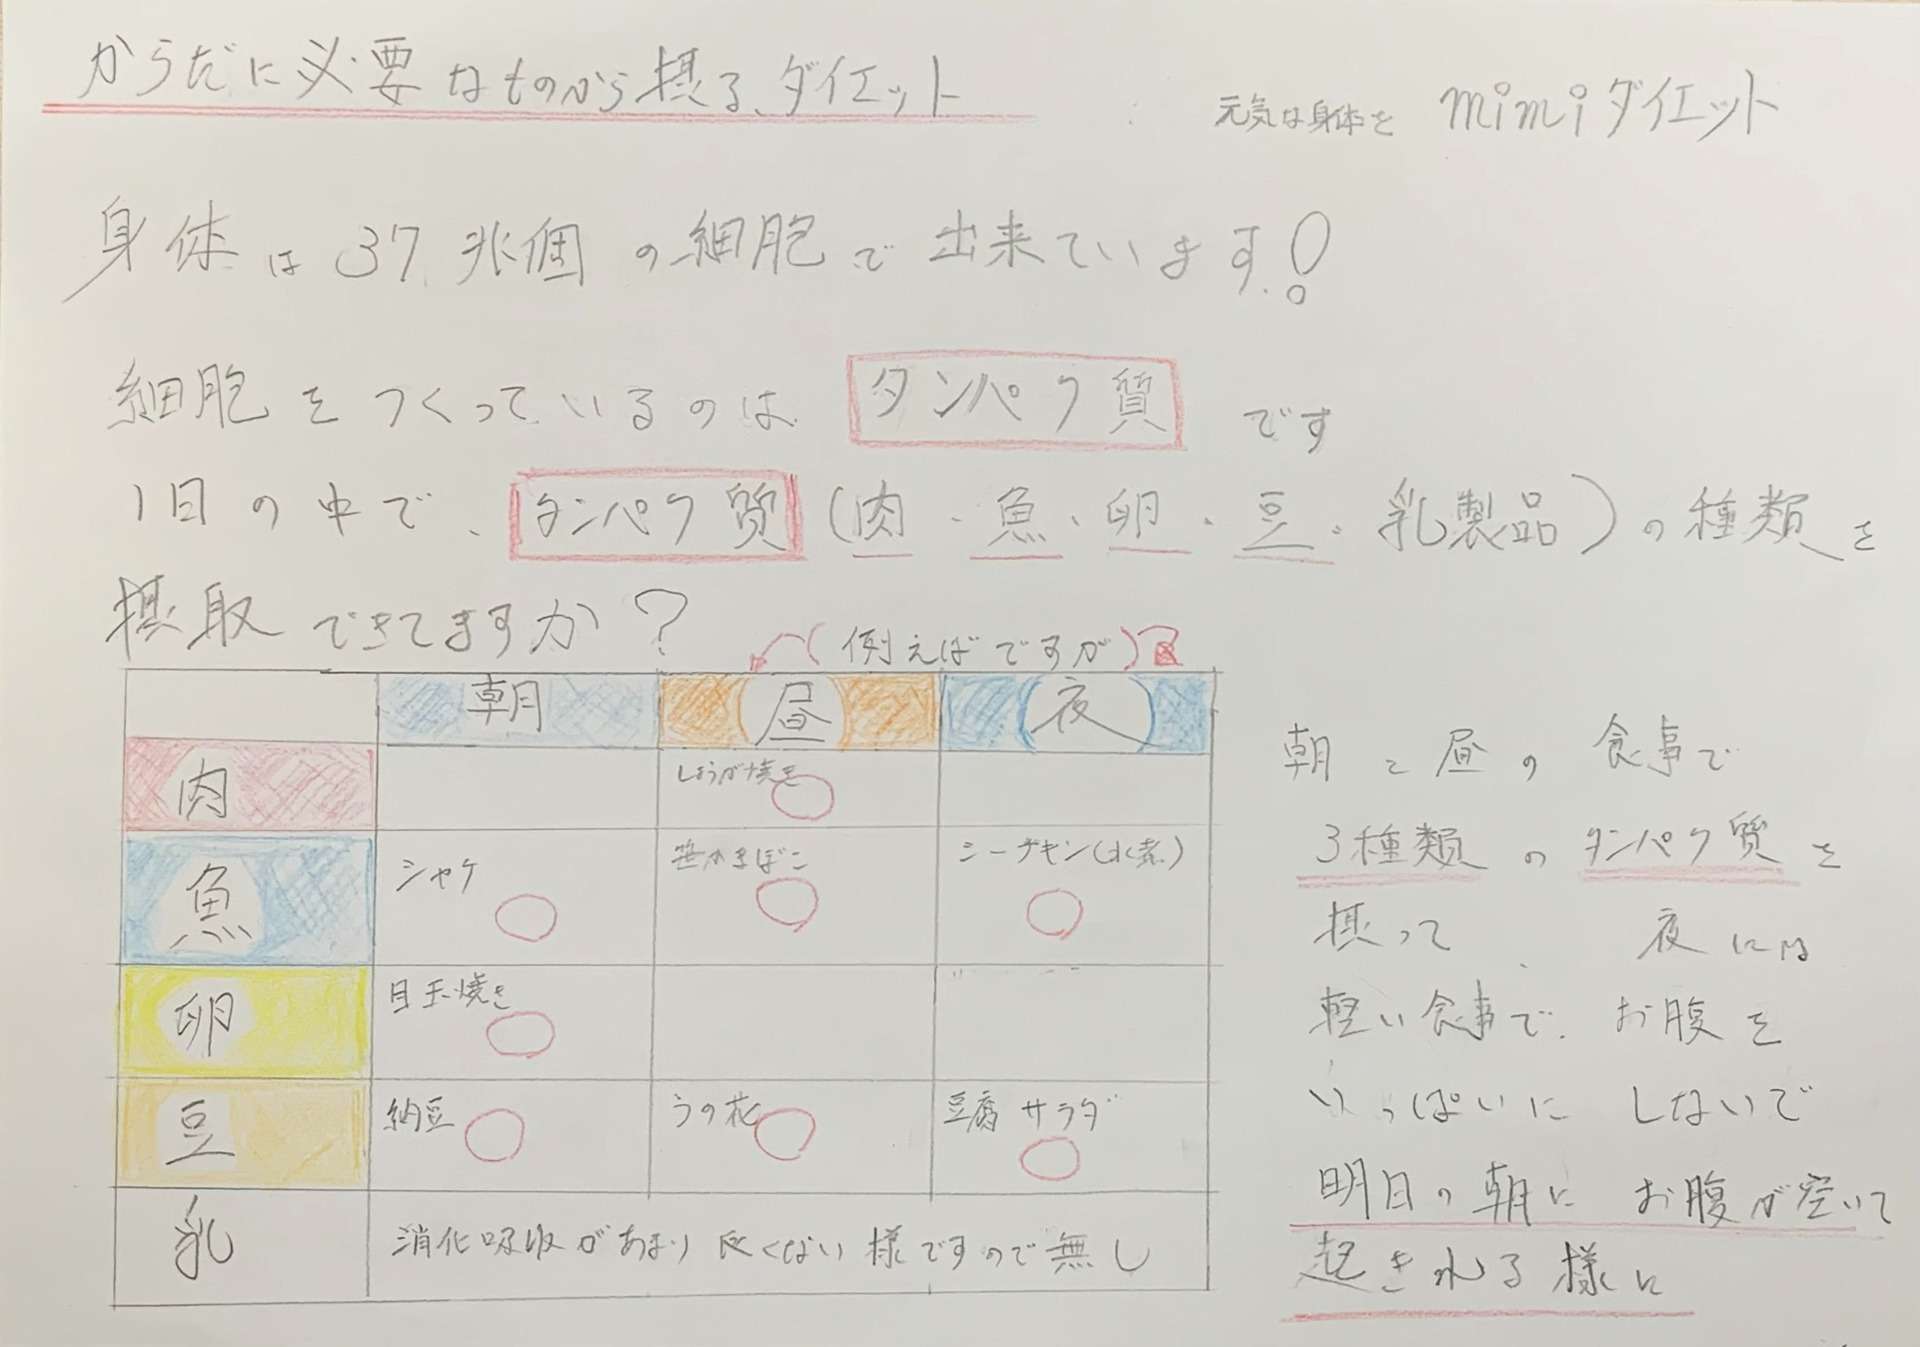 からだに必要なものから摂る、ダイエット
元気な身体を mimiダイエット
身体は37兆個の細胞で出来ています!
細胞をつくっているのは タンパク質 です
1日の中で、タンパク質(肉・魚・卵・豆・乳製品)の種類を
摂取できてますか?
(例えばですが)
朝 昼 夜
肉 しょうが焼き
魚 シャケ 笹かまぼこ シーチキン(水煮)
卵 目玉焼き
豆 納豆 うの花 豆腐サラダ
乳 消化吸収があまり良くない様ですので無し
朝と昼の食事で
3種類のタンパク質を
摂って、夜には
軽い食事で、お腹を
いっぱいにしないで
明日の朝にお腹が空いて
起きれる様に